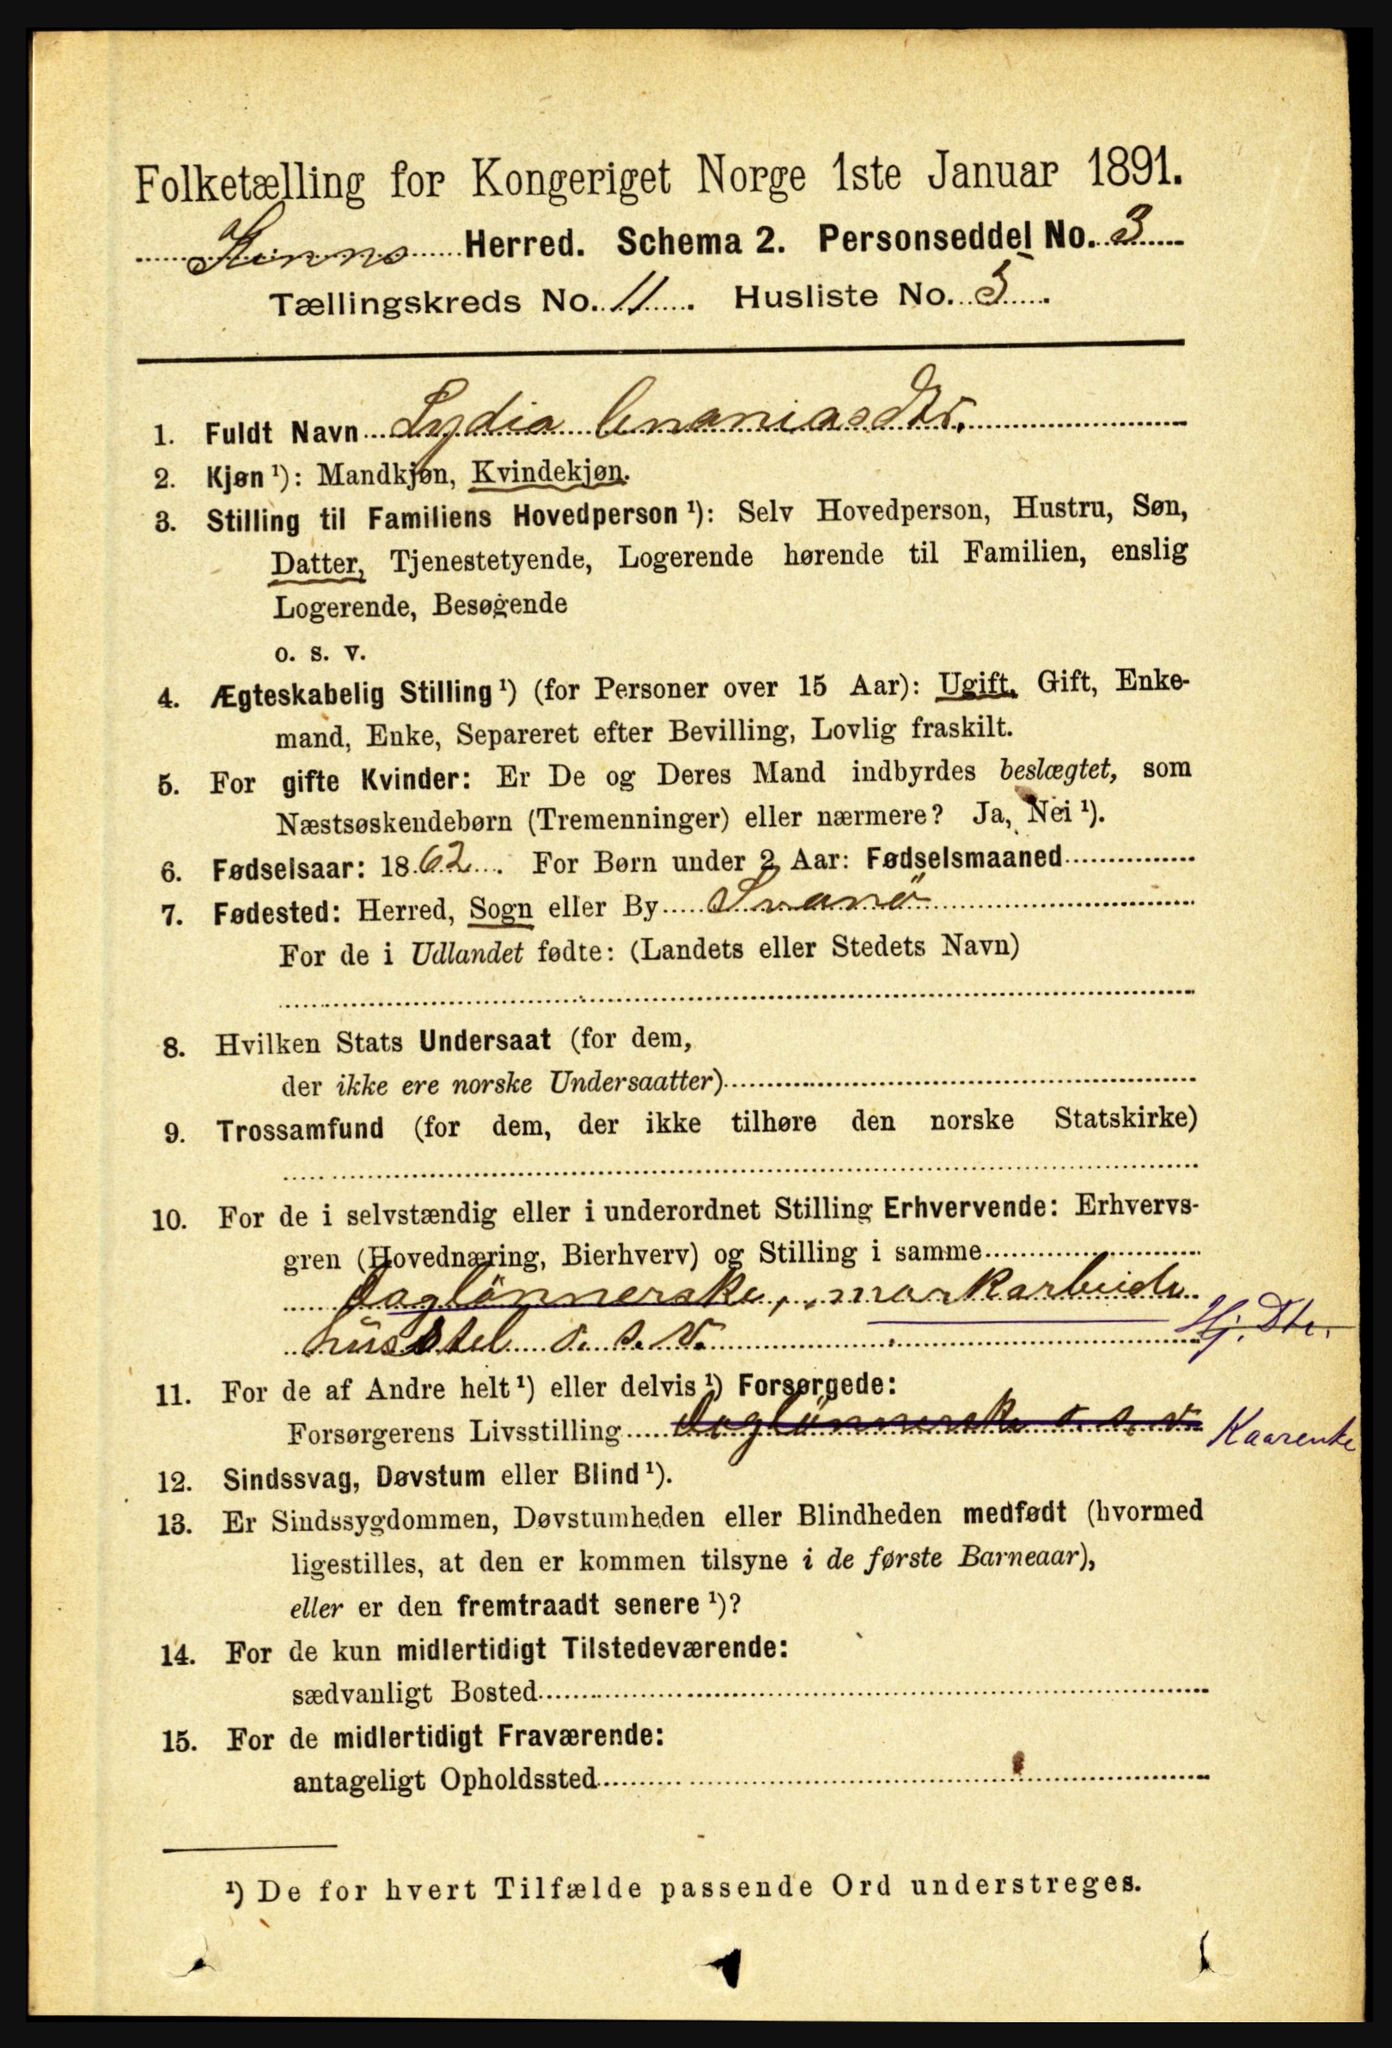 Folketælling for Kongeriget Norge 1ste Januar 1891.
Kinns Herred. Schema 2. Personseddel No. 3
Tællingskreds No. 11. Husliste No. 5.
1. Fuldt Navn Lydia Ananiasdtr.
2. Kjøn ¹): Mandkjøn, Kvindekjøn.
3. Stilling til Familiens Hovedperson ¹): Selv Hovedperson, Hustru, Søn,
Datter, Tjenestetyende, Logerende hørende til Familien, enslig
Logerende, Besøgende
o. s. v.
4. Ægteskabelig Stilling ¹) (for Personer over 15 Aar): Ugift, Gift, Enke-
mand, Enke, Separeret efter Bevilling, Lovlig fraskilt.
5. For gifte Kvinder: Er De og Deres Mand indbyrdes beslægtet, som
Næstsøskendebørn (Tremenninger) eller nærmere? Ja, Nei ¹).
6. Fødselsaar: 1862. For Børn under 2 Aar: Fødselsmaaned
7. Fødested: Herred, Sogn eller By Svanö
For de i Udlandet fødte: (Landets eller Stedets Navn)
8. Hvilken Stats Undersaat (for dem,
der ikke ere norske Undersaatter)
9. Trossamfund (for dem, der ikke tilhøre den norske Statskirke)
10. For de i selvstændig eller i underordnet Stilling Erhvervende: Erhvervs-
gren (Hovednæring, Bierhverv) og Stilling i samme
Daglönnerske, markarbeide
husstel o. s. v. Hj. Dtr.
11. For de af Andre helt ¹) eller delvis ¹) Forsørgede:
Forsørgerens Livsstilling Daglönnerske o. s. v. Kaarenke
12. Sindssvag, Døvstum eller Blind ¹).
13. Er Sindssygdommen, Døvstumheden eller Blindheden medfødt (hvormed
ligestilles, at den er kommen tilsyne i de første Barneaar),
eller er den fremtraadt senere ¹)?
14. For de kun midlertidigt Tilstedeværende:
sædvanligt Bosted
15. For de midlertidigt Fraværende:
antageligt Opholdssted
¹) De for hvert Tilfælde passende Ord understreges.